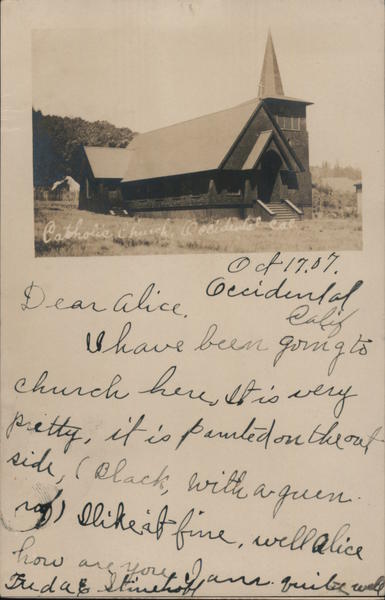 Catholic Church, Occidental Cal.
Oct 17.07.
Occidental
Calif
Dear Alice.
I have been going to
church here, It is very
pretty, it is painted on the out
side, (Black, with a green
I like it fine, well Alice
how are you I am quite well
Freda E.